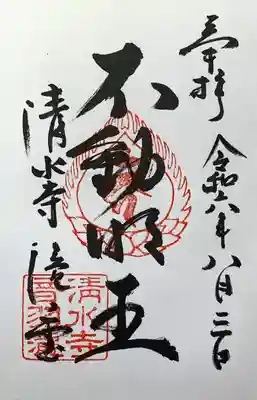 奉拝
令和六年八月三日
不動明王
清水寺 滝堂
清水寺